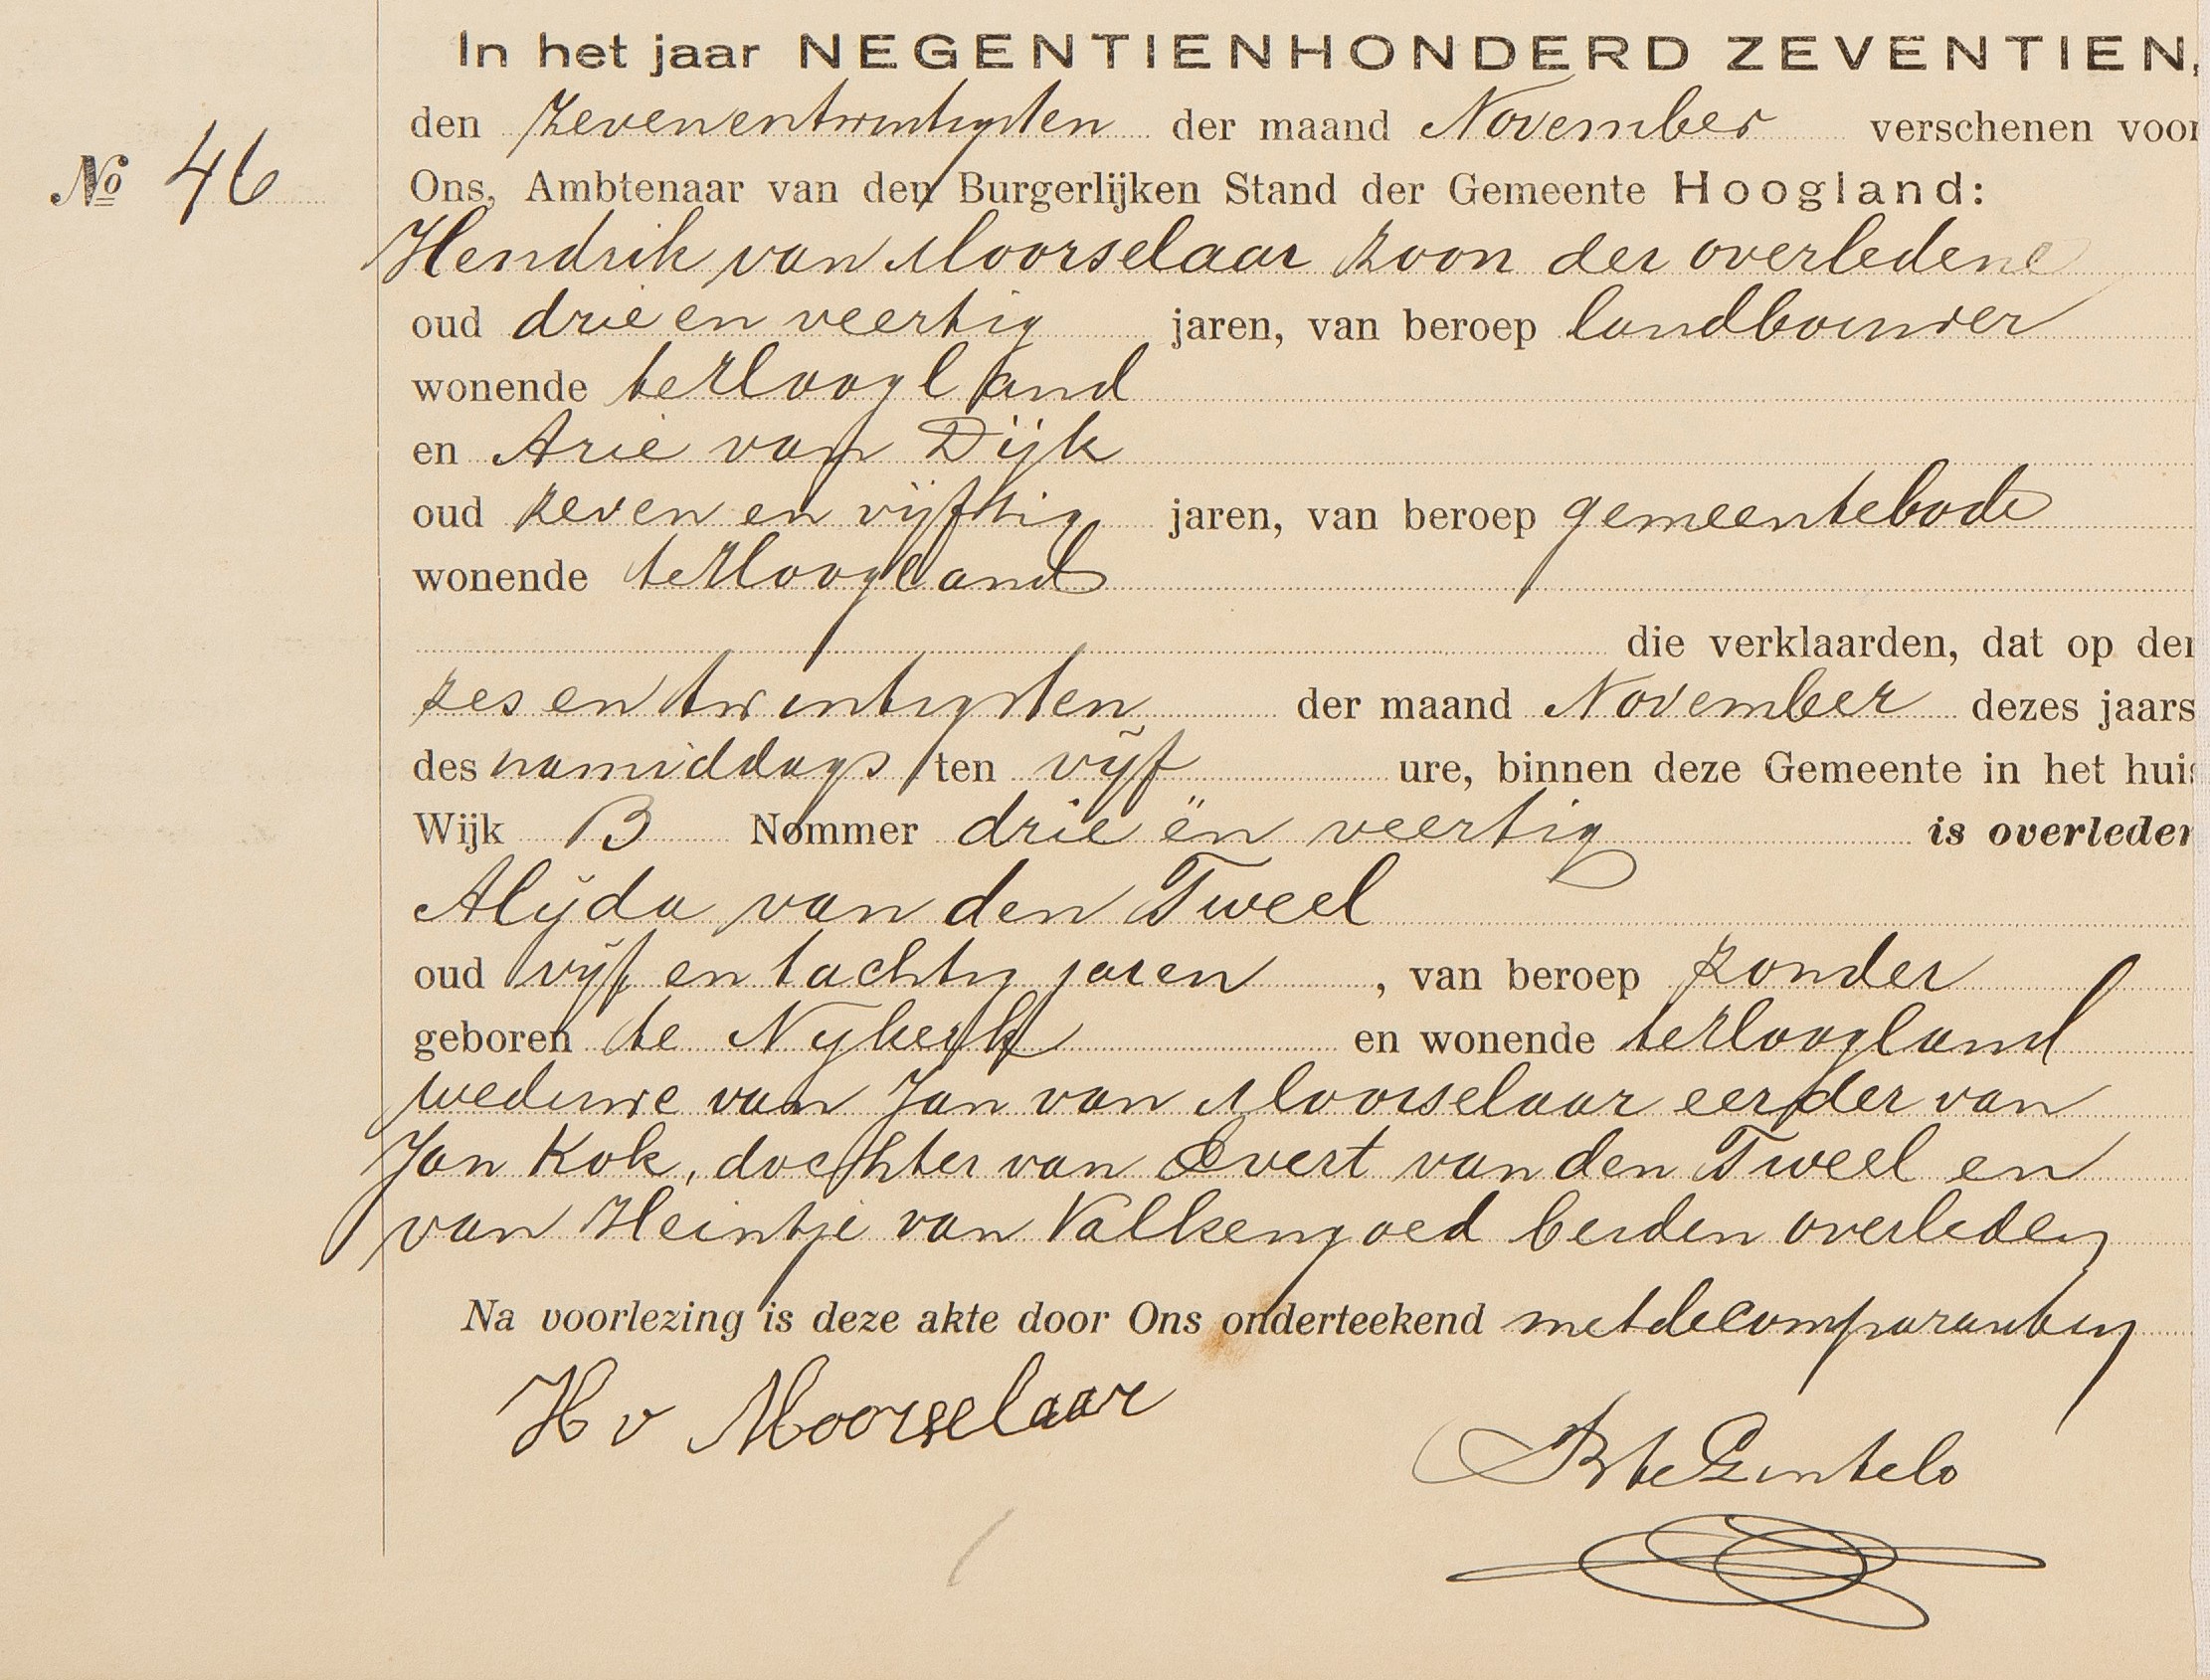 In het jaar NEGENTIENHONDERD ZEVENTIEN,
den zevenentwintigsten der maand November verschenen voor
No 46
Ons, Ambtenaar van den Burgerlijken Stand der Gemeente Hoogland:
Hendrik van Moorselaar zoon der overledene
oud drie en veertig jaren, van beroep landbouwer
wonende te Hoogland
en Arie van Dijk
oud zeven en vijftig jaren, van beroep gemeentebode
wonende te Hoogland
die verklaarden, dat op den
zes en twintigsten der maand November dezes jaars
des namiddags ten vijf ure, binnen deze Gemeente in het huis
Wijk B Nommer drie ën veertig is overleden
Alijda van den Tweel
oud vijf en tachtig jaren, van beroep zonder
geboren te Nijkerk en wonende te Hoogland
weduwe van Jan van Moorselaar eerder van
Jan Kok, dochter van Evert van den Tweel en
van Heintje van Valkengoed beiden overleden
Na voorlezing is deze akte door Ons onderteekend met de comparanten
H v Moorselaar